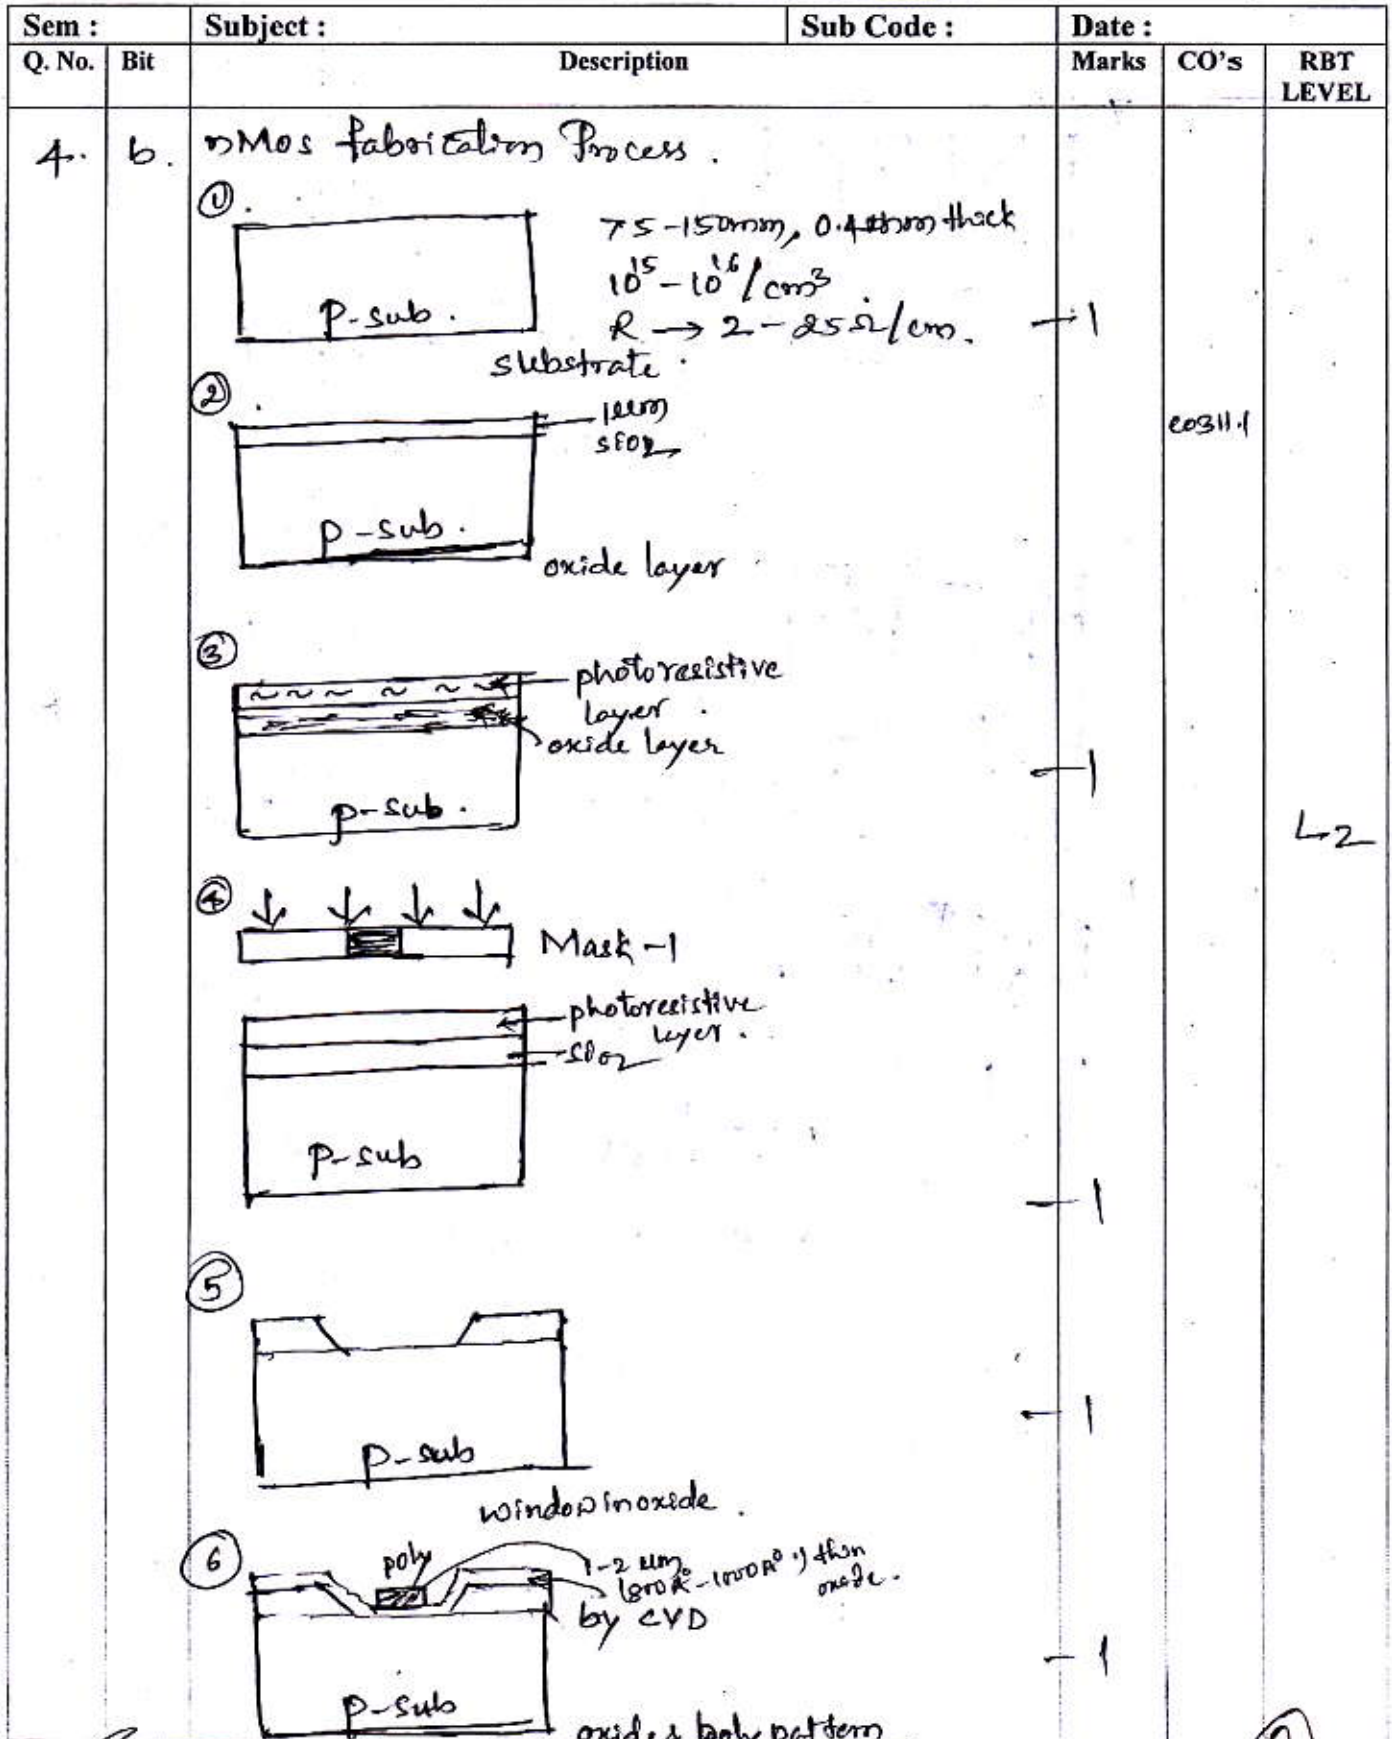 Sem : Subject : Sub Code : Date :
Q. No. Bit Description Marks CO's RBT LEVEL
4. b. nMos fabrication Process .
①.
75-150mm, 0.4 mm thick
10^15 - 10^16/cm³
R → 2 - 25Ω/cm.
P-sub .
substrate .
1
②
1um
SiO2
CO311.1
P-sub .
oxide layer
③
photoresistive
layer .
oxide layer
1
p-sub .
L2
④
Mask -1
photoresistive
layer .
SiO2
P-sub
1
⑤
1
P-sub
window in oxide .
⑥
poly
1-2 um
thin
oxide .
by CVD
1
P-sub
oxide & poly pattern